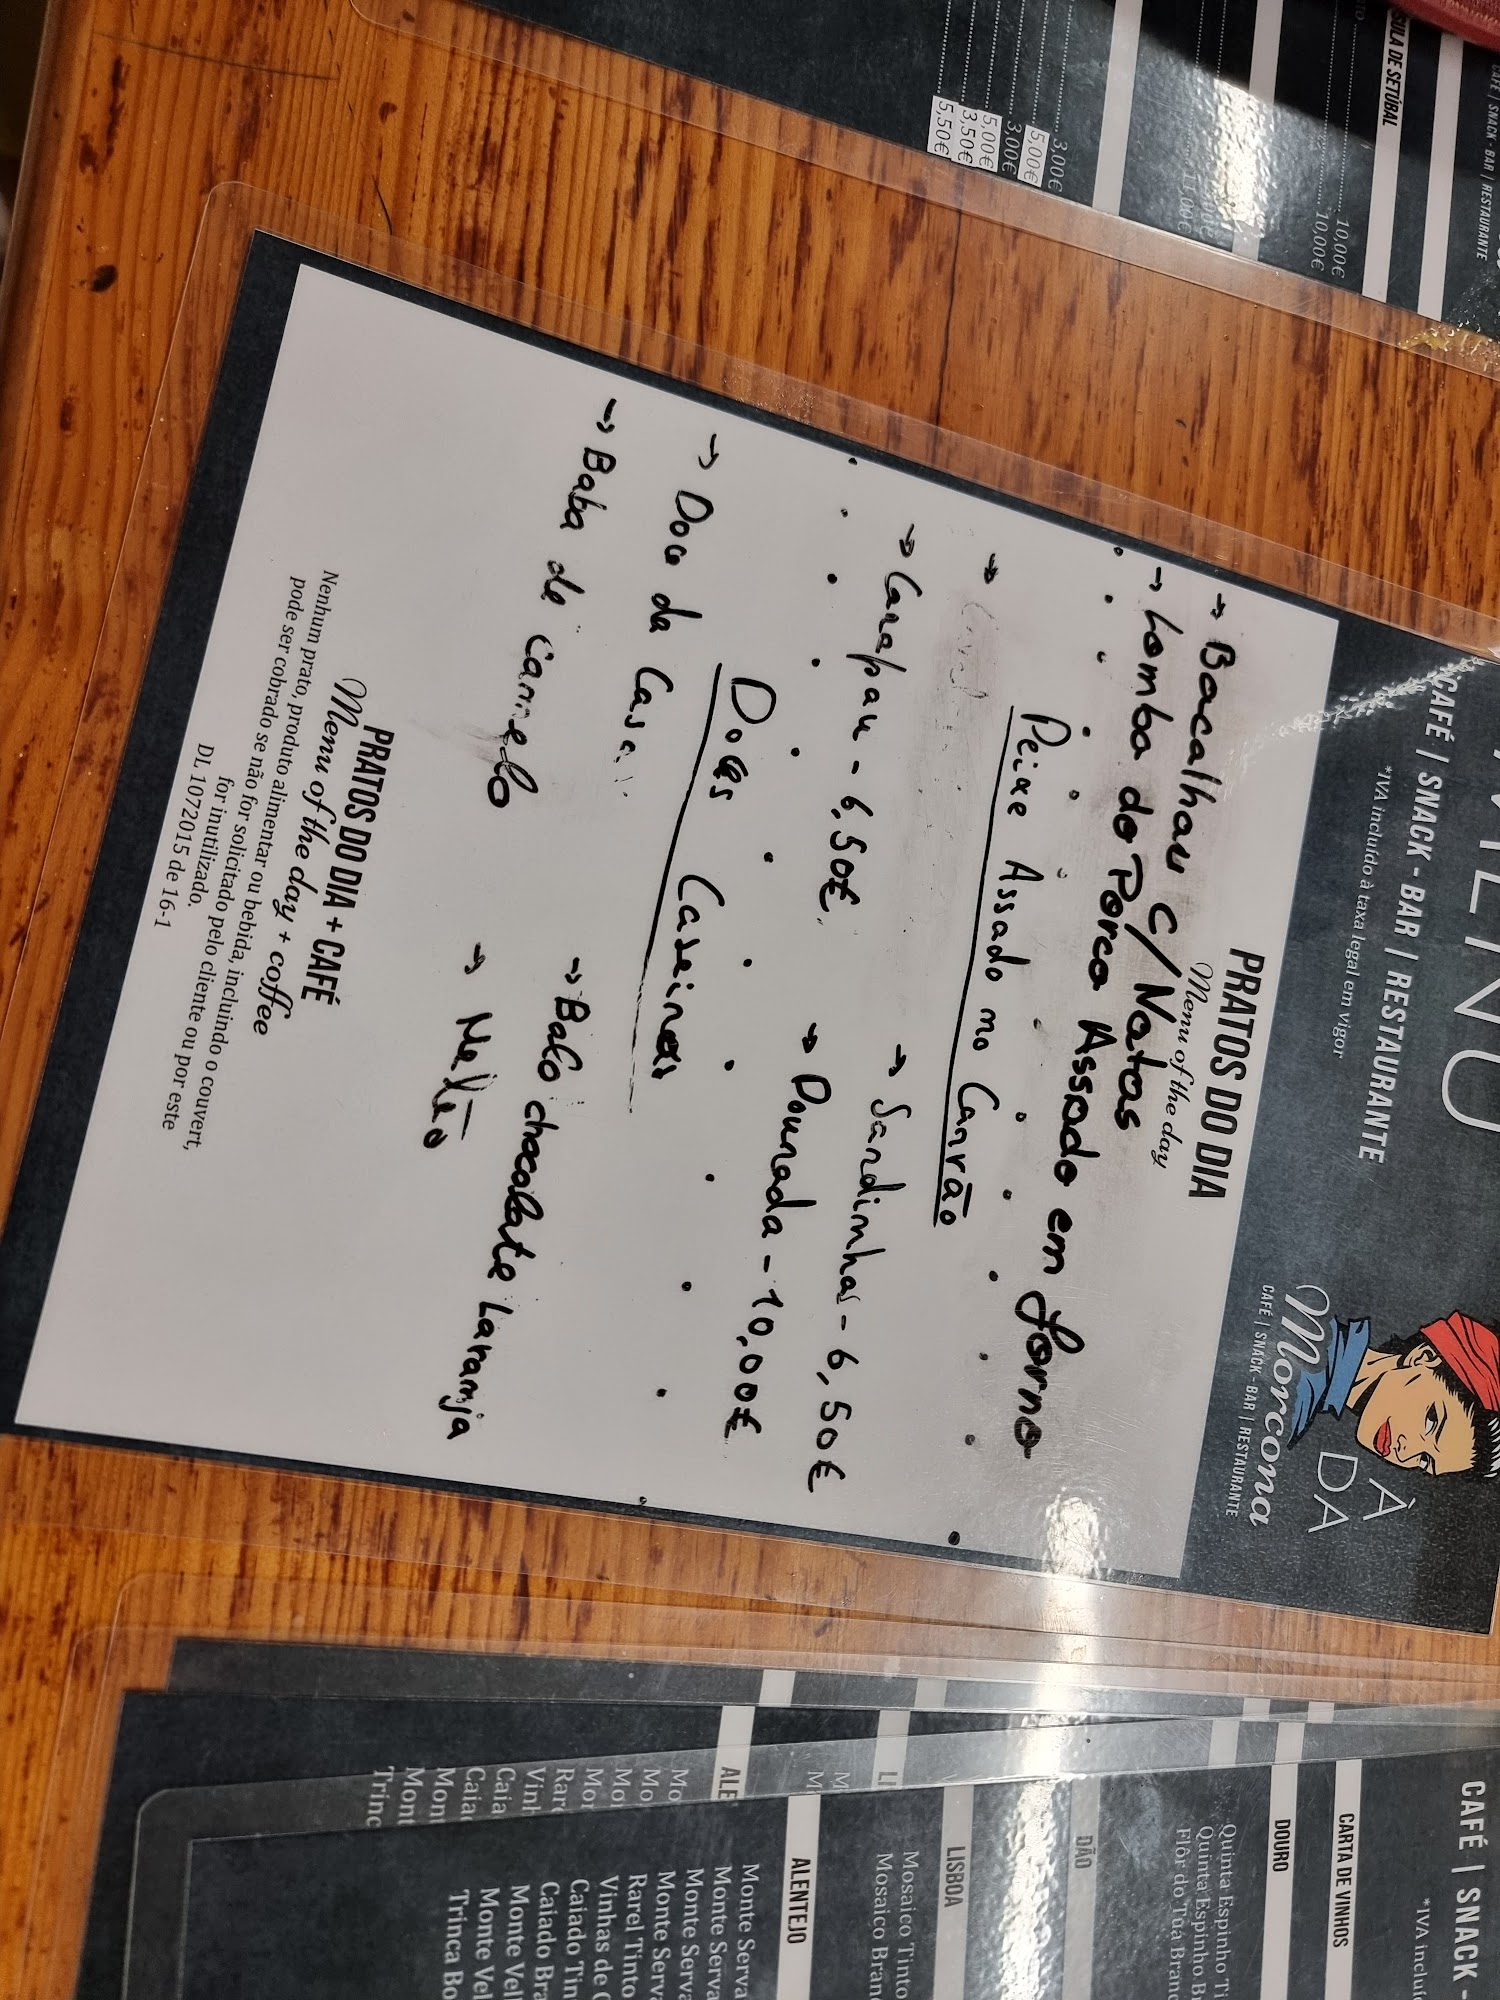 MENU
CAFÉ | SNACK - BAR | RESTAURANTE
*IVA incluído à taxa legal em vigor
À
DA
Morcona
CAFÉ | SNACK - BAR | RESTAURANTE
PRATOS DO DIA
Menu of the day
→ Bacalhau c/Natas
→ Lombo de Porco Assado em forno
Peixe Assado no Carvão
→ Carapau - 6,50€
→ Sardinhas - 6,50€
→ Dourada - 10,00€
Doces Caseiros
→ Doce da Casa
→ Baba de Camelo
→ Bolo chocolate Laranja
→ Melão
PRATOS DO DIA + CAFÉ
Menu of the day + coffee
Nenhum prato, produto alimentar ou bebida, incluindo o couvert,
pode ser cobrado se não for solicitado pelo cliente ou por este
for inutilizado.
DL 1072015 de 16-1
CAFÉ | SNACK - BAR | RESTAURANTE
SULA DE SETÚBAL
10,00€
10,00€
11,00€
3,00€
5,00€
3,00€
5,00€
3,50€
5,50€
CAFÉ | SNACK -
*IVA incluíd
CARTA DE VINHOS
DOURO
Quinta Espinho Ti
Quinta Espinho Br
Flôr do Tua Branc
DÃO
LISBOA
Mosaico Tinto
Mosaico Branc
ALENTEJO
Monte Serva
Monte Serva
Monte Serva
Monte Serva
Rarel Tinto
Vinhas de
Caiado Tin
Caiado Bra
Monte Vel
Monte Vel
Trinca Bo
LI
M
M
ALE
Mo
Mo
Mo
Mo
Rare
Vinh
Caia
Caiac
Mont
Mont
Trinc